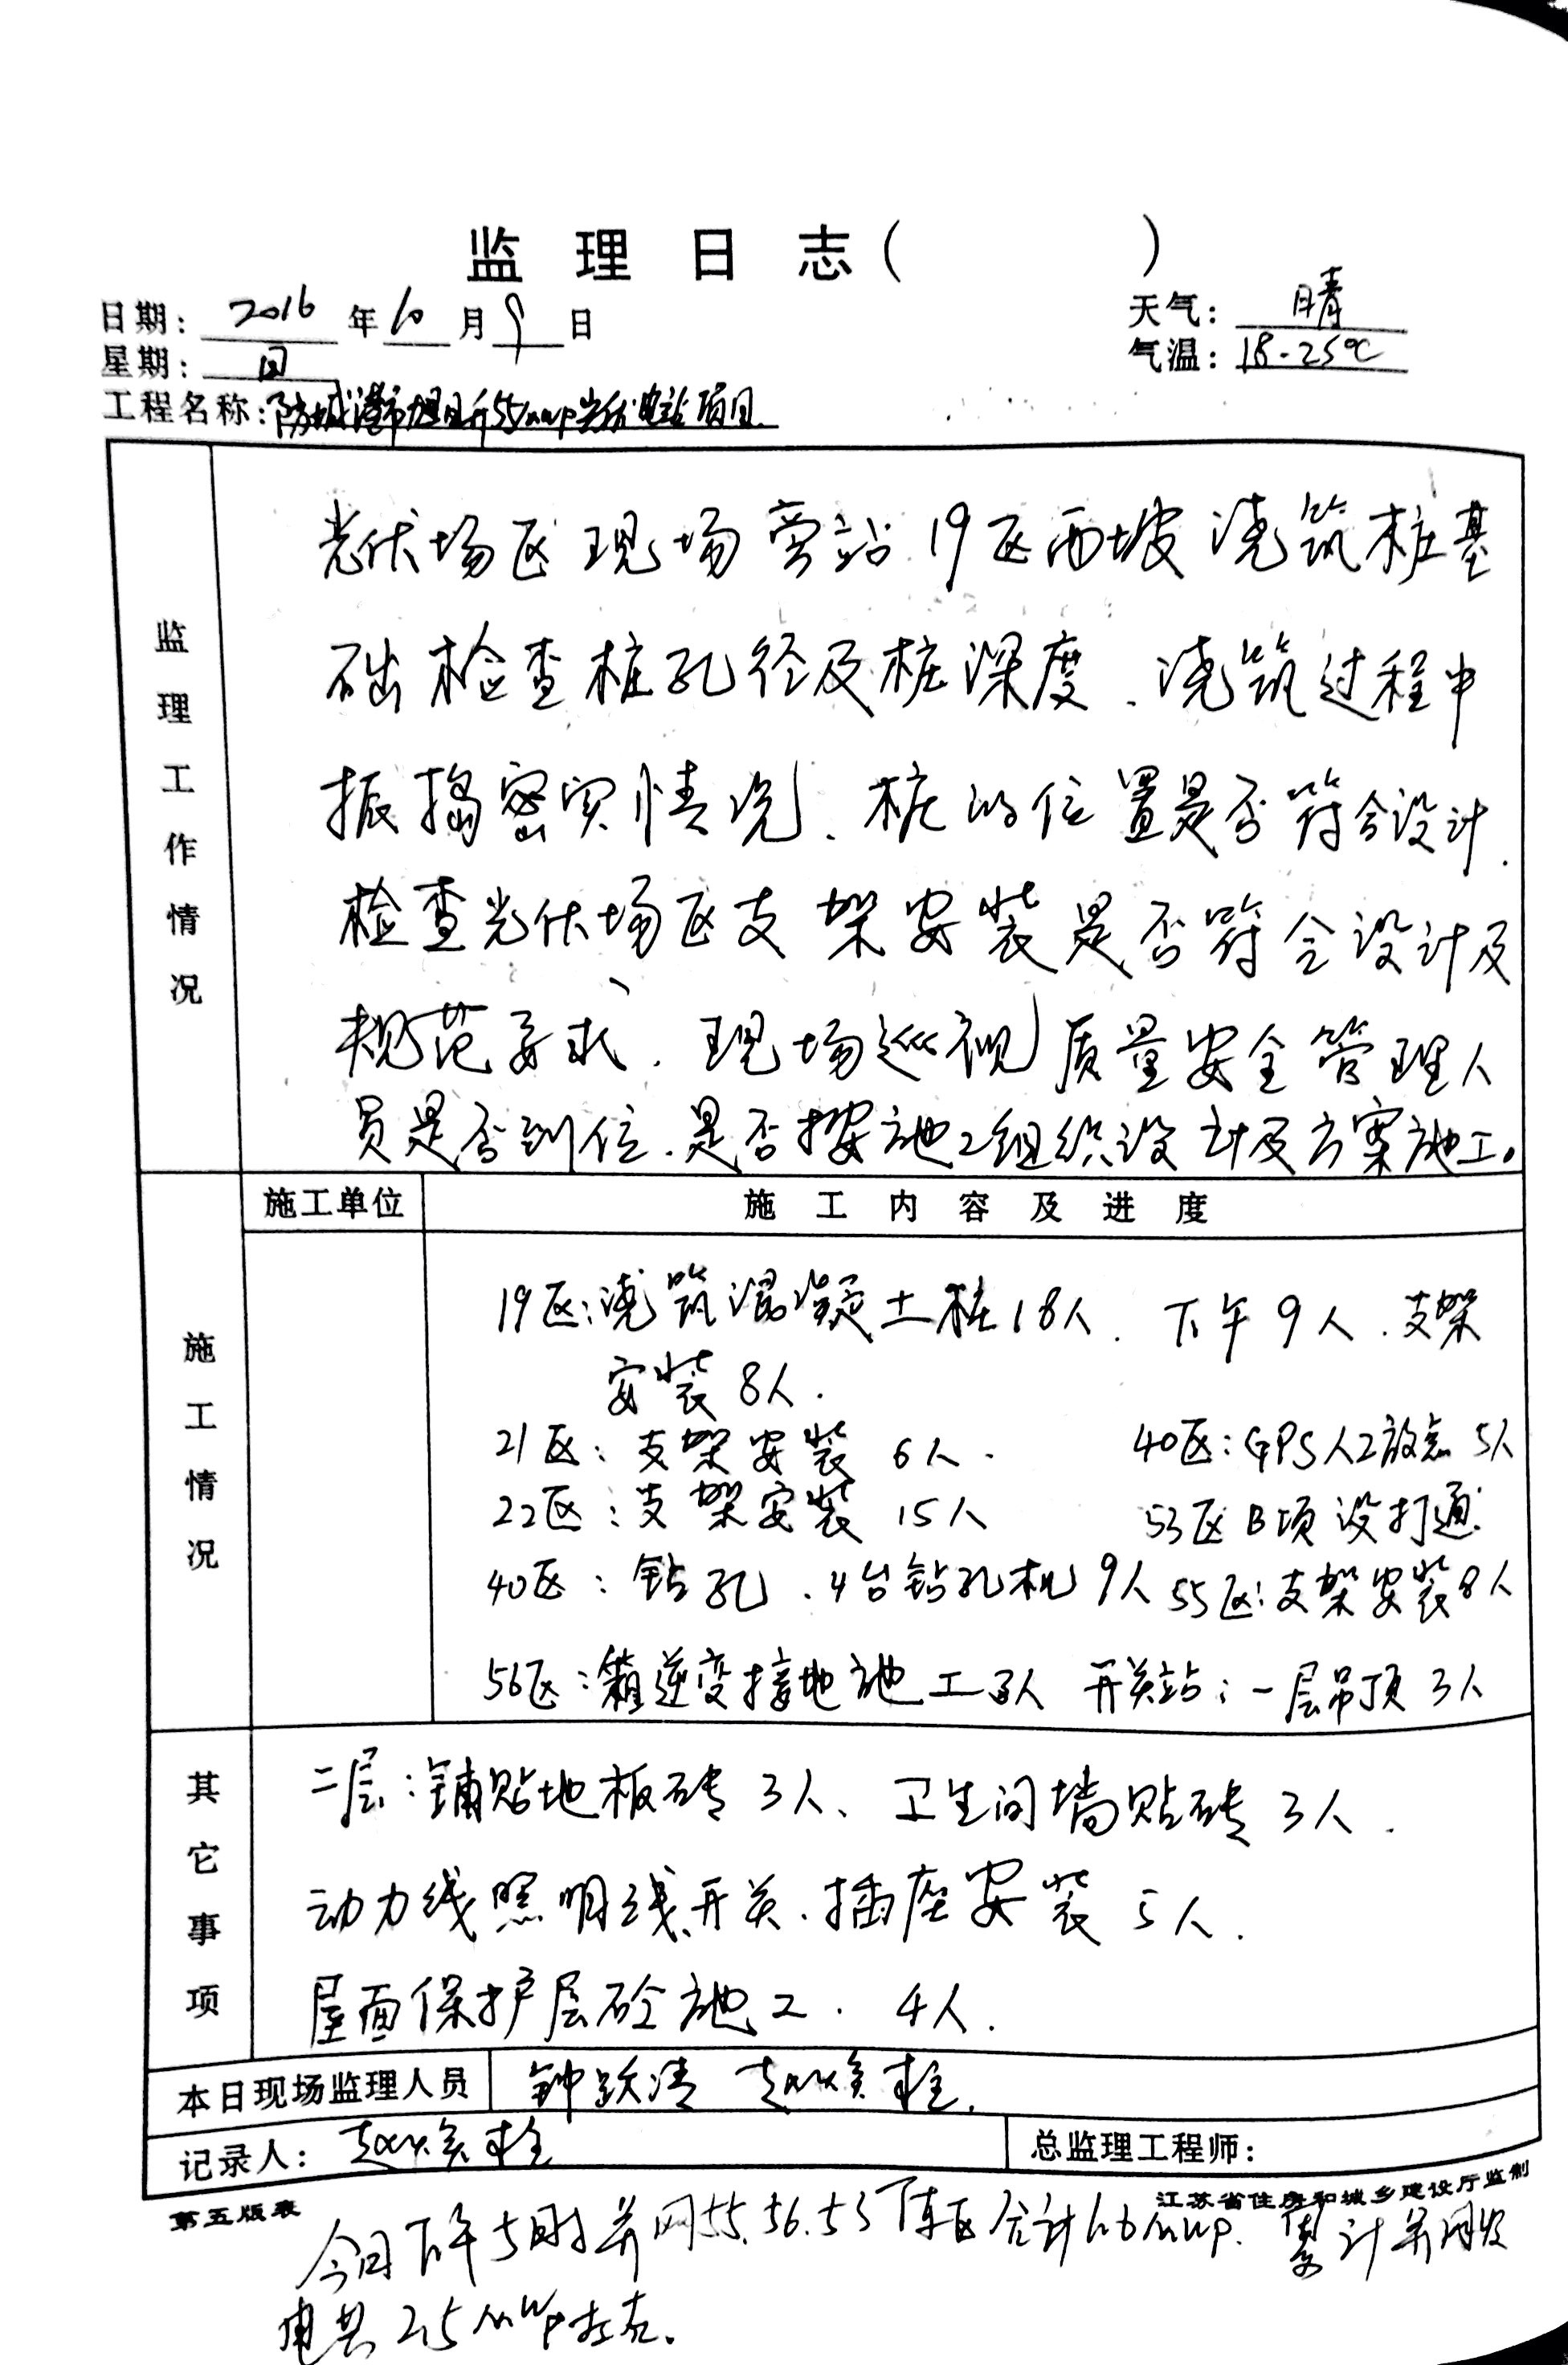 监理日志（ ）
日期：2016年10月9日 天气：晴
星期：日 气温：18-25℃
工程名称：防城港市旭日升55mwp光伏电站项目
监理工作情况
光伏场区现场旁站19区西坡浇筑桩基
础检查桩孔径及桩深度、浇筑过程中
振捣密实情况、桩的位置是否符合设计.
检查光伏场区支架安装是否符合设计及
规范要求、现场巡视质量安全管理人
员是否到位.是否按施工组织设计及方案施工。
施工情况
施工单位 施工内容及进度
19区:浇筑混凝土桩18人. 下午9人.支架
安装8人.
21区：支架安装 6人. 40区：GPS人工放点 5人
22区：支架安装 15人 53区B项没打通
40区：钻孔.4台钻孔机9人 55区：支架安装8人
56区：箱逆变接地施工3人 开关站：一层吊顶3人
其它事项
二层：铺贴地板砖3人、卫生间墙贴砖3人.
动力线照明线开关.插座安装5人.
屋面保护层砼施工. 4人.
本日现场监理人员 钟跃清 赵焕栓.
记录人：赵焕栓 总监理工程师：
第五版表 江苏省住房和城乡建设厅监制
今日下午5时并网55.56.53阵区合计 mwp. 累计并网发
电共25mwp左右.